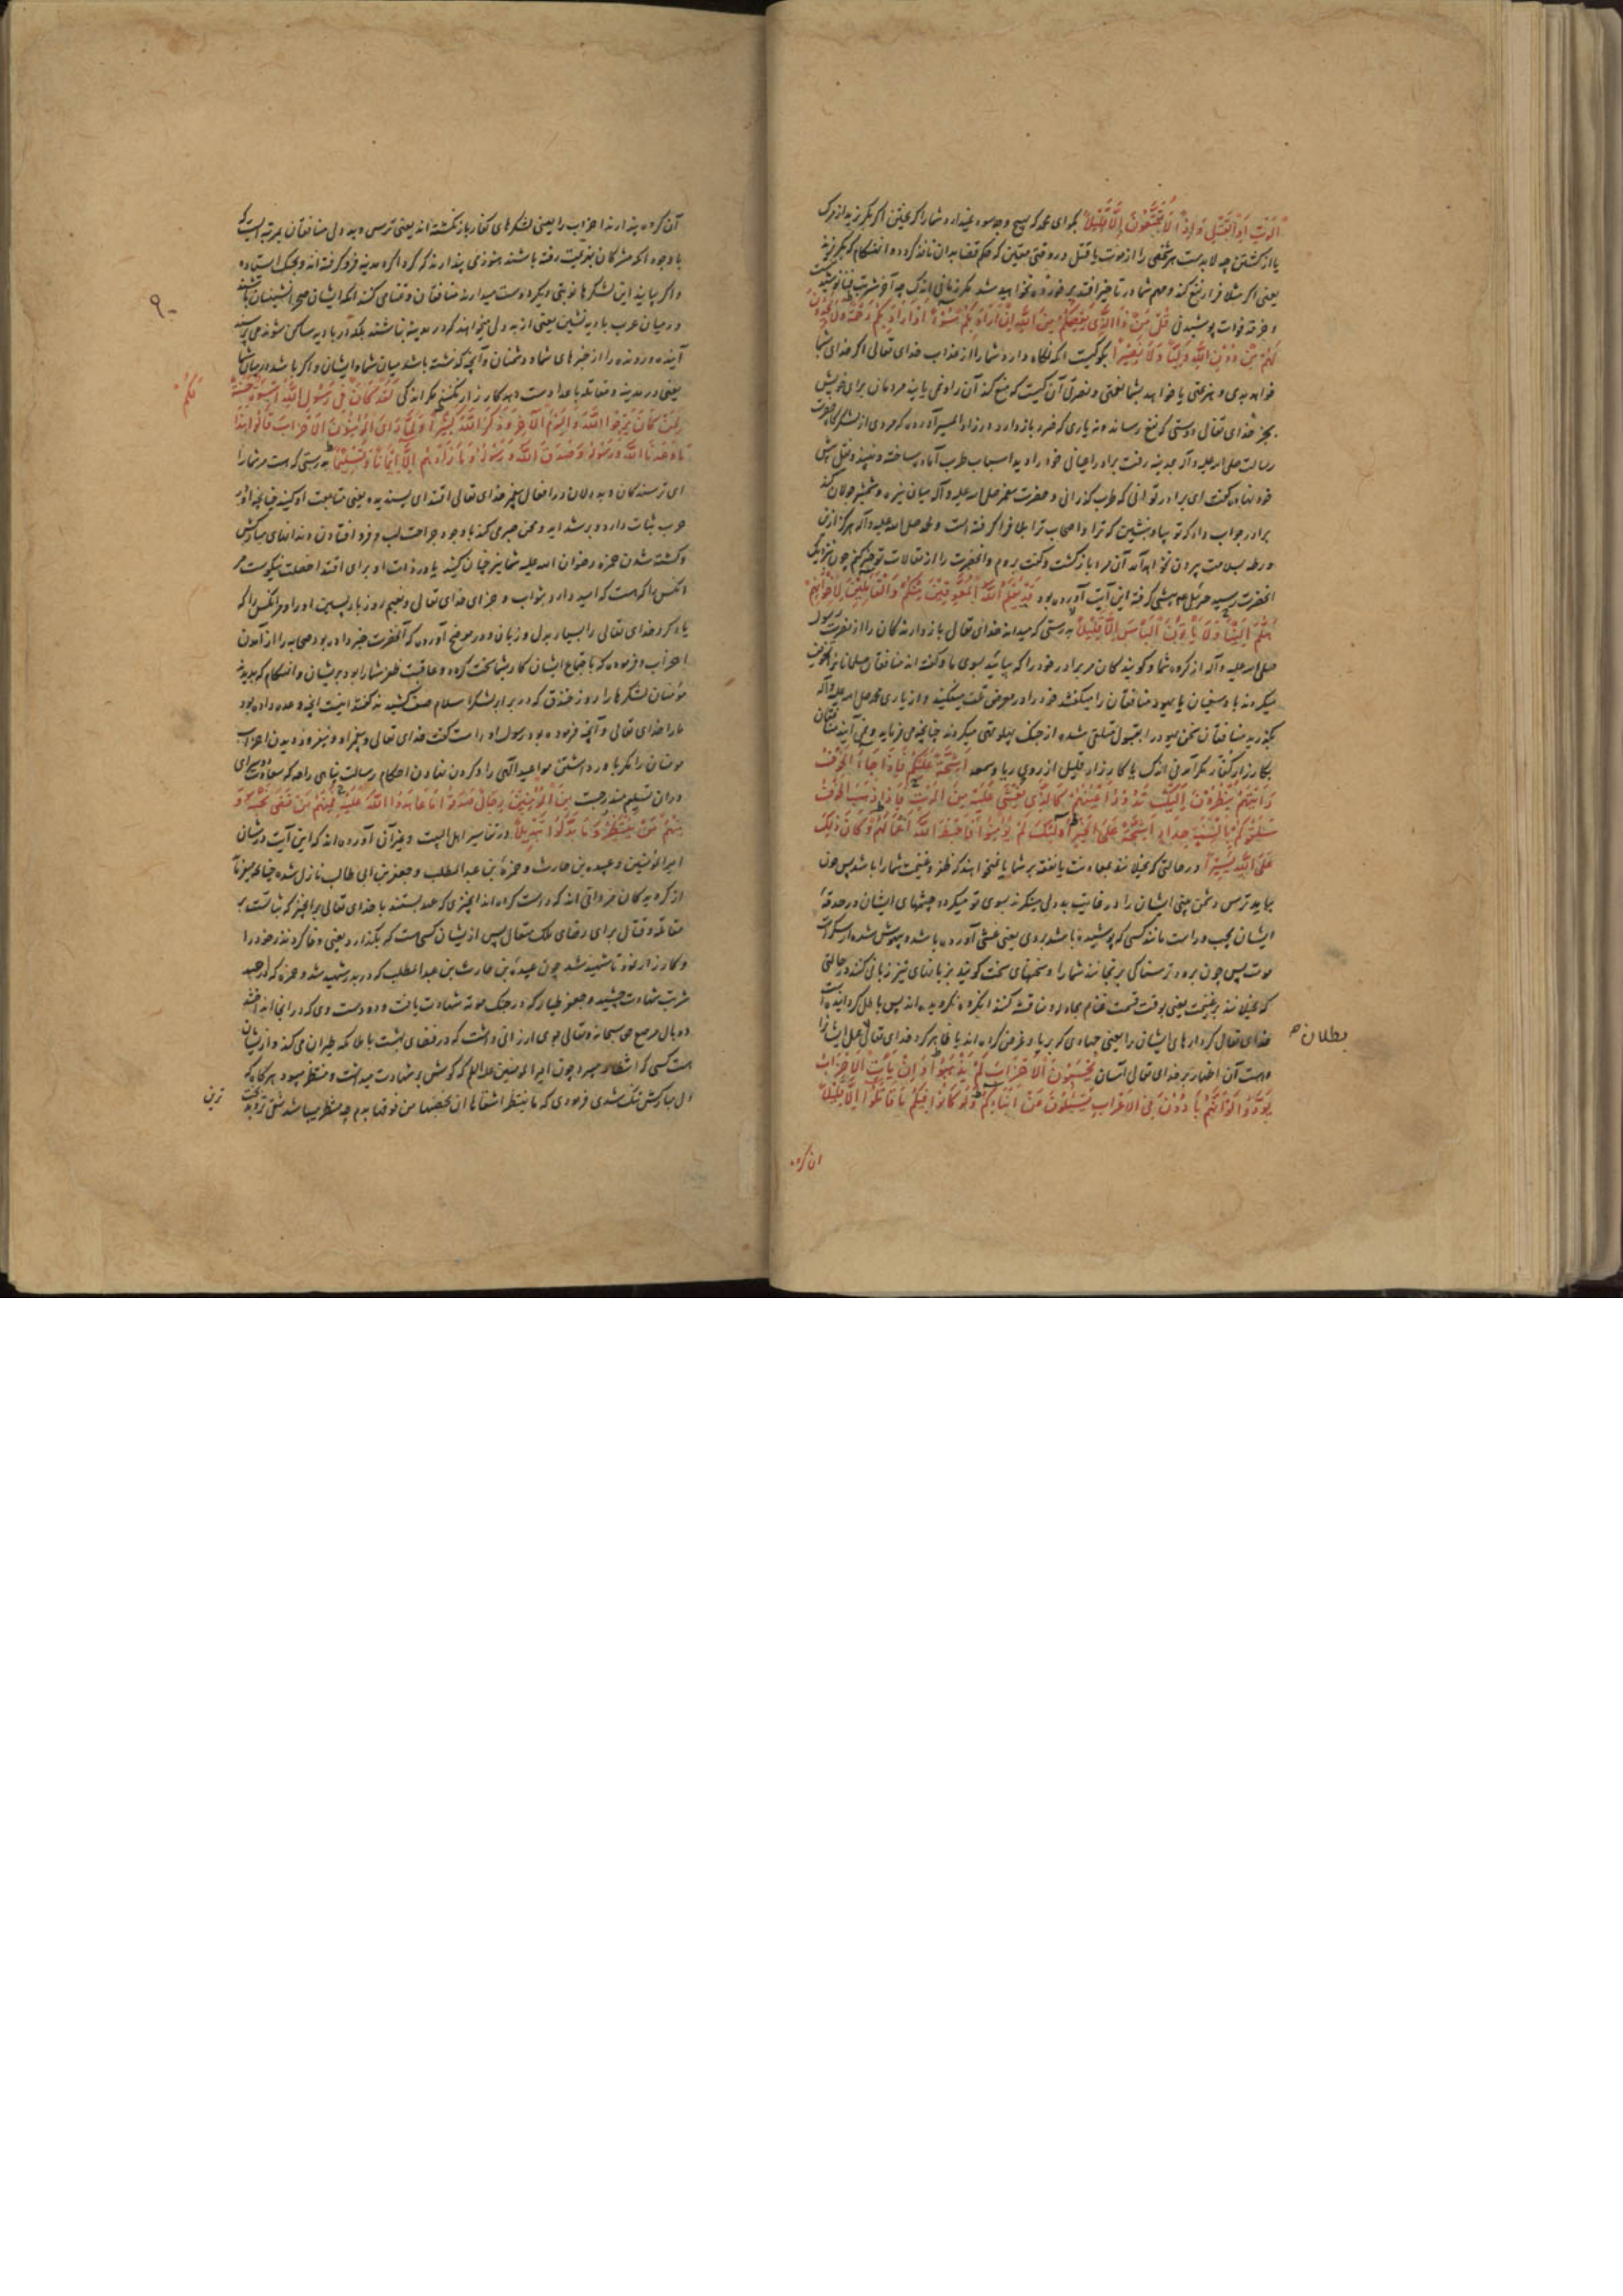 الْمَوْتِ اَوِ الْقَتْلِ وَاِذًا لَا تُمَتَّعُونَ اِلَّا قَلِيلًا بگو ای محمد که هیچ وجه سود ندارد شما را گریختن اگر بگریزید از مرگ
یا از کشتن چه لا بدست هر شخصی را از موت یا قتل در وقتی معین که حکم قضا بدان نافذ کرده
یعنی اگر مثلا فرار نفع کند و مهم شما در تاخیر افتد برخورداری نخواهید شد مگر زمانی اندک چه آخر شربت فنا
قُلْ مَنْ ذَا الَّذِي يَعْصِمُكُمْ مِنَ اللّٰهِ اِنْ اَرَادَ بِكُمْ سُوءًا اَوْ اَرَادَ بِكُمْ رَحْمَةً وَلَا يَجِدُونَ
لَهُمْ مِنْ دُونِ اللّٰهِ وَلِيًّا وَلَا نَصِيرًا بگو کیست آنکه نگاه دارد شما را از عذاب خدای تعالی اگر خدای بشما
خواهد بدی و هزیمتی یا خواهد بشما نعمتی و نصرتی آن کیست که منع کند آن را و نمی یابند مردمان برای خویش
بجز خدای تعالی دوستی که نفع رساند و نه یاری که ضرر باز دارد
رسالت صلی الله علیه وآله بمدینه رفت برادر اعیانی خود را دید اسباب طرب آماده ساخته
خود نهاده گفت ای برادر تو اینجا بطرب گذرانی و حضرت پیغمبر صلی الله علیه وآله میان نیزه و شمشیر جولان کند
برادر جواب داد که تو بیا و بنشین که ترا و اصحاب ترا بلا فرا گرفته است و محمد صلی الله علیه وآله هرگز ازین
ورطه بسلامت بیرون نخواهد آمد آن مرد بازگشت و گفت بروم و آنحضرت را از مقالات تو خبر کنم چون نزدیک
آنحضرت رسید جبرئیل پیشی گرفته این آیت آورده بود قَدْ يَعْلَمُ اللّٰهُ الْمُعَوِّقِينَ مِنْكُمْ وَالْقَائِلِينَ لِاِخْوَانِهِمْ
هَلُمَّ اِلَيْنَا وَلَا يَأْتُونَ الْبَأْسَ اِلَّا قَلِيلًا بدرستی که میداند خدای تعالی باز دارندگان را از نصرت رسول
صلی الله علیه وآله از گروه شما و گویندگان مر برادر خود را که بیائید بسوی ما و گفته اند منافقان مسلمانان را تخویف
میکردند با ابوسفیان یا یهود منافقان را میگفتند خود را در معرض تلف میفکنید و از یاری محمد صلی الله علیه وآله
بگذرید منافقان سخن یهود را بقبول تلقی شده از جنگ پهلو تهی میکردند چنانچه می فرماید و نمی آیند منافقان
بکارزار کفار مگر آمدنی اندک یا کارزار قلیل از روی ریا و سمعه اَشِحَّةً عَلَيْكُمْ فَاِذَا جَاءَ الْخَوْفُ
رَاَيْتَهُمْ يَنْظُرُونَ اِلَيْكَ تَدُورُ اَعْيُنُهُمْ كَالَّذِي يُغْشَى عَلَيْهِ مِنَ الْمَوْتِ فَاِذَا ذَهَبَ الْخَوْفُ
سَلَقُوكُمْ بِاَلْسِنَةٍ حِدَادٍ اَشِحَّةً عَلَى الْخَيْرِ اُولٰئِكَ لَمْ يُؤْمِنُوا فَاَحْبَطَ اللّٰهُ اَعْمَالَهُمْ وَكَانَ ذٰلِكَ
عَلَى اللّٰهِ يَسِيرًا در حالتی که بخیلانند بمعاونت یا نفقه بر شما یا نمیخواهند که ظفر و غنیمت شما را باشد پس چون
بیاید ترس دشمن بینی ایشان را در غایت بددلی مینگرند بسوی تو میگردد چشمهای ایشان در حدقه
ایشان بچپ و راست مانند کسی که پوشیده باشد بروی یعنی غشی آورده باشد و بیهوش شده از سکرات
موت پس چون برود ترسناکی برنجانند شما را و سخنهای سخت گویند بزبانهای تیز زبانی کنند در حالتی
که بخیلانند بر غنیمت یعنی بوقت قسمت غنایم مجادله و مناقشه کنند آنگروه نگرویده اند پس باطل گردانیده است
خدای تعالی کردارهای ایشان را یعنی جهادی که بریا و غرض کرده اند یا ظاهر کرد خدای تعالی بطلان عمل ایشانرا
و هست آن احباط بر خدای تعالی آسان يَحْسَبُونَ الْاَحْزَابَ لَمْ يَذْهَبُوا وَاِنْ يَأْتِ الْاَحْزَابُ
يَوَدُّوا لَوْ اَنَّهُمْ بَادُونَ فِي الْاَعْرَابِ يَسْئَلُونَ عَنْ اَنْبَائِكُمْ وَلَوْ كَانُوا فِيكُمْ مَا قَاتَلُوا اِلَّا قَلِيلًا
ان گروه
بطلان صح
آن گروه پندارند احزاب را یعنی لشکرهای کفار باز نگشته اند یعنی ترس و بددلی منافقان بمرتبه ایست که
با وجود آنکه مشرکان بهزیمت رفته باشند هنوز می پندارند که گرداگرد مدینه فرو گرفته اند و بجنگ ایستاده
و اگر بیایند این لشکرها نوبتی دیگر دوست میدارند منافقان و تمنای کنند آنکه ایشان صحرانشینان باشند
در میان عرب بادیه نشین یعنی از بددلی میخواهند که در مدینه نباشند بلکه در بادیه ساکن شوند می پرسند
آینده و رونده را از خبرهای شما و دشمنان و آنچه گذشته باشد میان شما و ایشان و اگر باشند در میان شما
یعنی در مدینه و مقاتله با اعدا دست دهد کارزار نکنند مگر اندکی لَقَدْ كَانَ لَكُمْ فِي رَسُولِ اللّٰهِ اُسْوَةٌ حَسَنَةٌ
لِمَنْ كَانَ يَرْجُوا اللّٰهَ وَالْيَوْمَ الْاٰخِرَ وَذَكَرَ اللّٰهَ كَثِيرًا وَلَمَّا رَاَى الْمُؤْمِنُونَ الْاَحْزَابَ قَالُوا هٰذَا
مَا وَعَدَنَا اللّٰهُ وَرَسُولُهُ وَصَدَقَ اللّٰهُ وَرَسُولُهُ وَمَا زَادَهُمْ اِلَّا اِيمَانًا وَتَسْلِيمًا بدرستی که هست مر شما را
ای ترسندگان و بددلان در افعال پیغمبر خدای تعالی اقتدای پسندیده یعنی متابعت او کنید چنانچه او در
حرب ثبات دارد و بر شداید و محن صبر میکند با وجود جراحت لب و فرو افتادن دندانهای مبارکش
و کشته شدن حمزه رضوان الله علیه شما نیز چنان کنید یا در ذات او برای اقتدا خصلت نیکوست مر
آنکس را که هست که امید دارد بثواب و جزای خدای تعالی و نعیم روز باز پسین او را و مر آنکس را که
یاد کرد خدای تعالی را بسیار بدل و زبان و در موضح آورده که آنحضرت خبر داده بود صحابه را از آمدن
احزاب و فرموده که باجتماع ایشان کار بشما سخت گردد و عاقبت ظفر شما را بود بر ایشان و آنهنگام که بدیدند
مؤمنان لشکرها را روز خندق که در برابر لشکر اسلام صف کشیدند گفتند اینست آنچه وعده داده بود
ما را خدای تعالی و آنچه فرموده بود رسول او راست گفت خدای تعالی و پیغمبر او و نیفزود دیدن احزاب
مؤمنان را مگر باور داشتن مواعید الهی را و گردن نهادن احکام رسالت پناهی را
دران تسلیم مندرجست مِنَ الْمُؤْمِنِينَ رِجَالٌ صَدَقُوا مَا عَاهَدُوا اللّٰهَ عَلَيْهِ فَمِنْهُمْ مَنْ قَضَى نَحْبَهُ وَ
مِنْهُمْ مَنْ يَنْتَظِرُ وَمَا بَدَّلُوا تَبْدِيلًا در تفاسیر اهل البیت و غیر آن آورده اند که این آیت در شان
امیر المؤمنین و عبیده بن حارث و حمزة بن عبدالمطلب و جعفر بن ابی طالب نازل شده چنانچه میفرماید
از گرویدگان مردانی اند که راست کرده اند آنچیزی که عهد بستند با خدای تعالی بر آنچیز که ثباتست بر
مقاتله و قتال برای رضای ملک متعال پس از ایشان کسی هست که بگذارد یعنی وفا کرد نذر خود را
و کارزار نمود تا شهید شد چون عبیدة بن حارث بن عبدالمطلب که در بدر شهید شد و حمزه که در احد
شربت شهادت چشید و جعفر طیار که در جنگ موته شهادت یافت و دو دست وی که در آنجا انداختند
دو بال مرصع حق سبحانه و تعالی بوی ارزانی داشت که در فضای بهشت با ملائکه طیران می کند و از ایشان
هست کسی که انتظار میبرد چون امیر المؤمنین علیه السلام که کوشش و شهادت میداشت و منتظر میبود هرگاه که
دل مبارکش تنگ شدی فرمودی که ما ینتظر اشقاها ان یخضبها من فوقها بدم چه منتظر میباشد شقی
ترین
لَكُمْ
۹۰